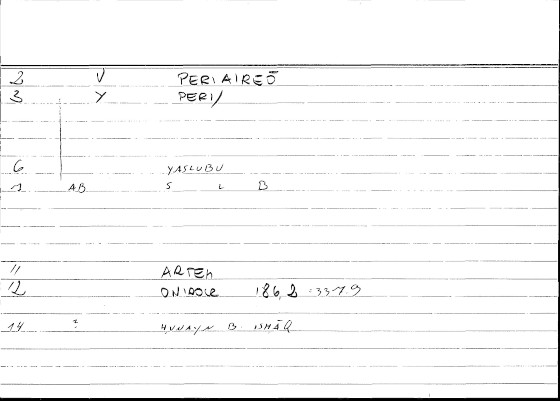 2 V PERIAIREŌ
3 Y PERI/
6 YASLUBU
1 AB S L B
11 ARTEM
12 ONIROCR 186,2 = 337.9
14 ? ḤUNAYN B. ISḤĀQ